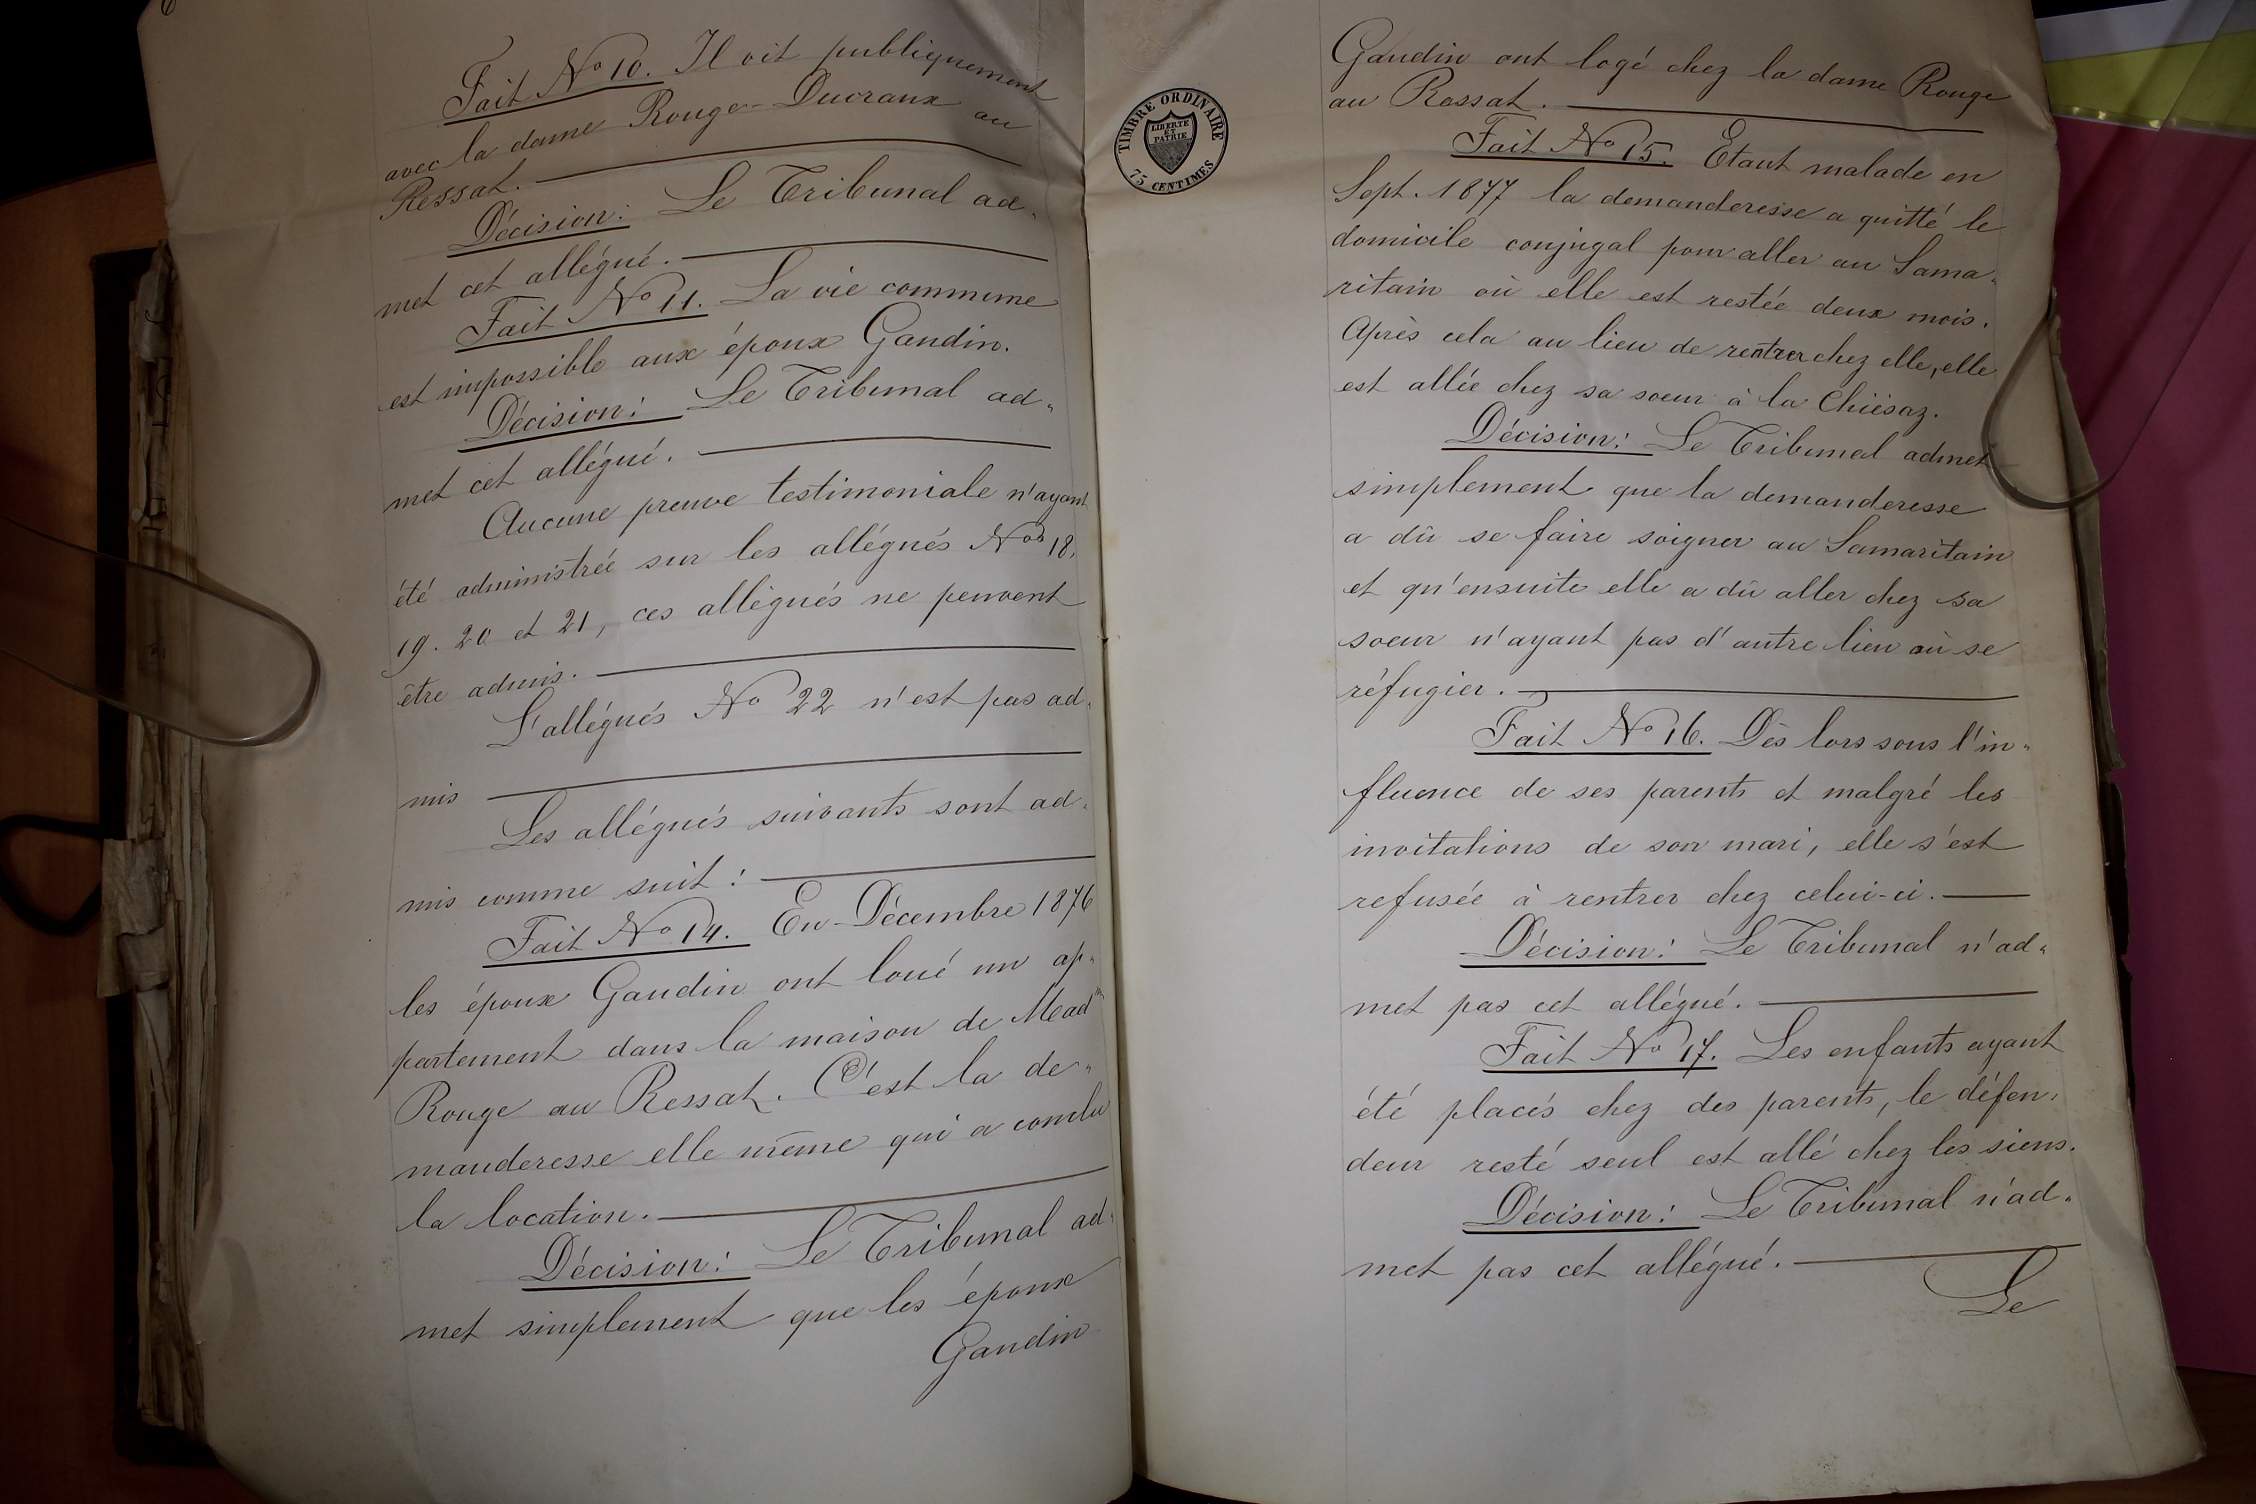 Fait No 10. Il vit publiquement
avec la dame Rouge-Ducraux au
Ressat.
Décision: Le Tribunal ad-
met cet allégué.
Fait No 11. La vie commune
est impossible aux époux Gaudin.
Décision: Le Tribunal ad-
met cet allégué.
Aucune preuve testimoniale n'ayant
été administrée sur les allégués Nos 18,
19. 20 et 21, ces allégués ne peuvent
être admis.
L'allégués No 22 n'est pas ad-
mis
Les allégués suivants sont ad-
mis comme suit:
Fait No 14. En Décembre 1876
les époux Gaudin ont loué un ap-
partement dans la maison de Madm
Rouge au Ressat. C'est la de-
manderesse elle même qui a conclu
la location.
Décision: Le Tribunal ad-
met simplement que les époux
Gaudin
TIMBRE ORDINAIRE
LIBERTE
ET
PATRIE
75 CENTIMES
Gaudin ont logé chez la dame Rouge
au Ressat.
Fait No 15. Etant malade en
Sept. 1877 la demanderesse a quitté le
domicile conjugal pour aller au Sama-
ritain où elle est restée deux mois.
Après cela au lieu de rentrer chez elle, elle
est allée chez sa soeur à la Chiésaz.
Décision: Le Tribunal admet
simplement que la demanderesse
a dû se faire soigner au Samaritain
et qu'ensuite elle a dû aller chez sa
soeur n'ayant pas d'autre lieu où se
réfugier.
Fait No 16. Dès lors sous l'in-
fluence de ses parents et malgré les
invitations de son mari, elle s'est
refusée à rentrer chez celui-ci.
Décision: Le Tribunal n'ad-
met pas cet allégué.
Fait No 17. Les enfants ayant
été placés chez des parents, le défen-
deur resté seul est allé chez les siens.
Décision: Le Tribunal n'ad-
met pas cet allégué.
Le